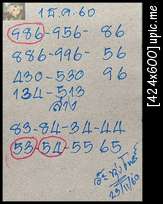 1 ธ.ค. 60
986-956- 86
886-996- 56
430-530 96
134-513
ล่าง
83-84-34-44
53-54-55 65
23/11/60
[424x600]upic.me